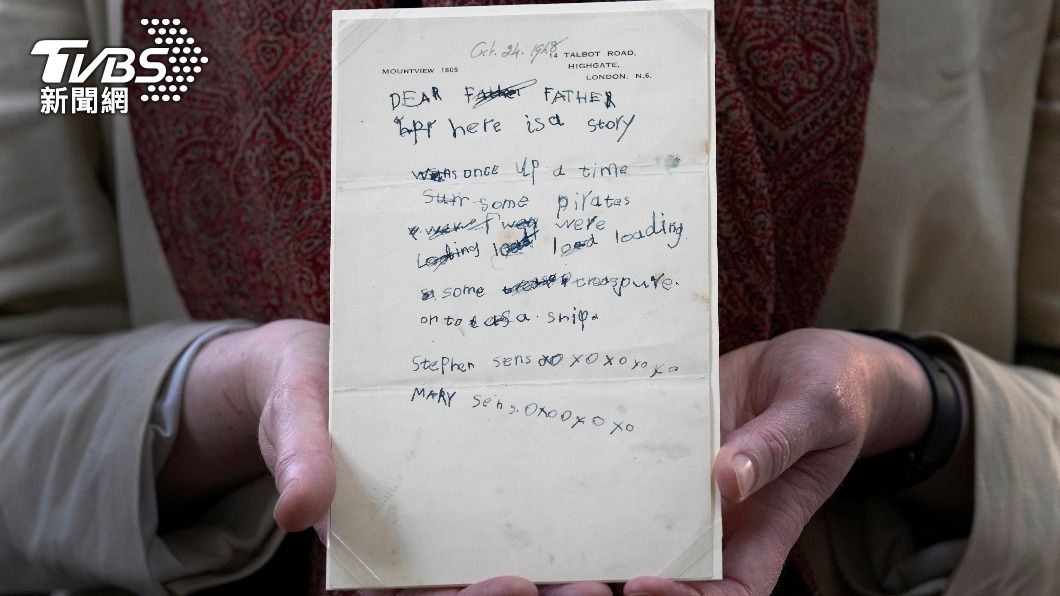 TVBS
新聞網
Oct. 24. 1948
MOUNTVIEW 1805
14 TALBOT ROAD,
HIGHGATE,
LONDON, N.6.
DEAR Father FATHER
here is a story
was once up a time
some pirates
were
loading load load loading
some treaspure.
on to a ship.
Stephen sens xo xo xo xo xo
MARY sens. oxoo xo xo